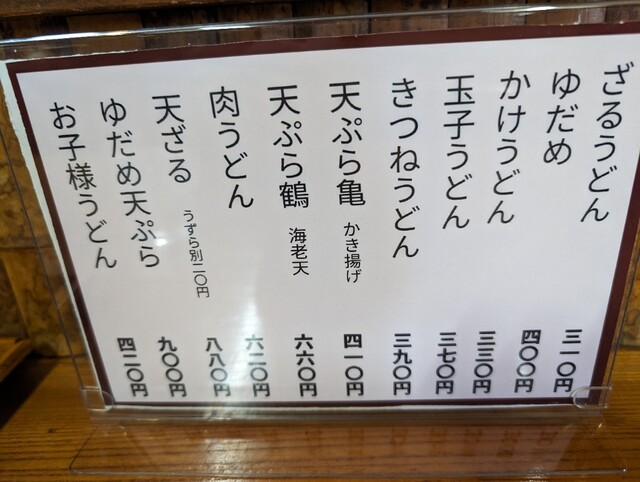 ざるうどん 三一〇円
ゆだめ 四〇〇円
かけうどん 三三〇円
玉子うどん 三七〇円
きつねうどん 三九〇円
天ぷら亀 かき揚げ 四一〇円
天ぷら鶴 海老天 六六〇円
肉うどん 六二〇円
天ざる うずら別二〇円 八八〇円
ゆだめ天ぷら 九〇〇円
お子様うどん 四二〇円